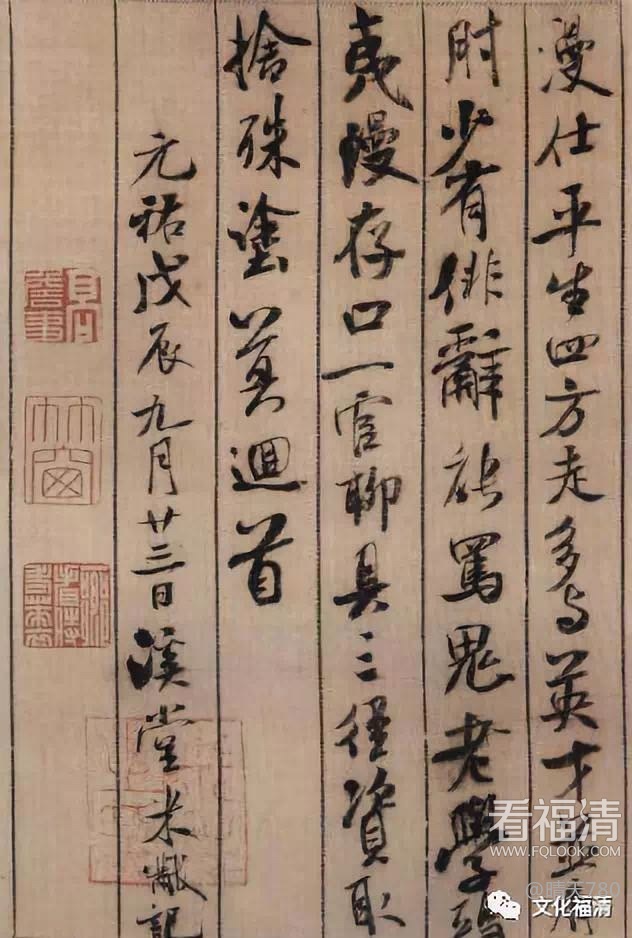 漫仕平生四方走多与英才並肩
肘少有俳辭能罵鬼老學鴟
夷漫存口一官聊具三徑資取
捨殊塗莫迴首
元祐戊辰九月廿三日溪堂米黻記
竹窗
看福清
WWW.FQLOOK.COM
@晴天780
文化福清